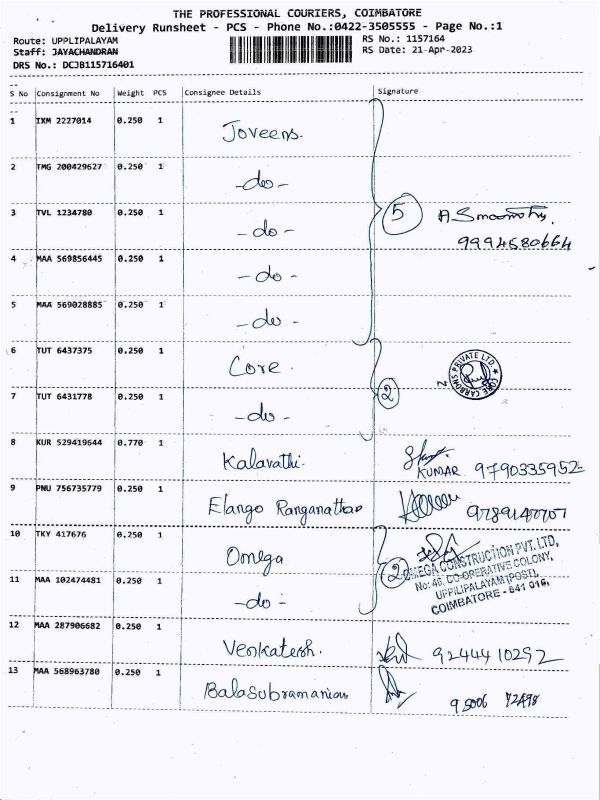 THE PROFESSIONAL COURIERS, COIMBATORE
Delivery Runsheet - PCS - Phone No.:0422-3505555 - Page No.:1
Route: UPPLIPALAYAM
RS No.: 1157164
Staff: JAYACHANDRAN
RS Date: 21-Apr-2023
DRS No.: DCJB115716401
S No Consignment No Weight PCS Consignee Details Signature
1 IXM 2227014 0.250 1 Joveens.
2 TMG 200429627 0.250 1 -do-
3 TVL 1234780 0.250 1 -do-
5
9994580664
4 MAA 569856445 0.250 1 -do-
5 MAA 569028885 0.250 1 -do-
6 TUT 6437375 0.250 1 Core.
CORE CARBONS PRIVATE LTD.
2
7 TUT 6431778 0.250 1 -do-
8 KUR 529419644 0.770 1 Kalavathi.
KUMAR 9790335952
9 PNU 756735779 0.250 1 Elango Ranganathan
10 TKY 417676 0.250 1 Omega
2
OMEGA CONSTRUCTION PVT. LTD,
No: 46, CO-OPERATIVE COLONY,
UPPILIPALAYAM (POST),
COIMBATORE - 641 015.
11 MAA 102474481 0.250 1 -do-
12 MAA 287906682 0.250 1 Venkatesh. 9244410292
13 MAA 568963780 0.250 1 Balasubramanian